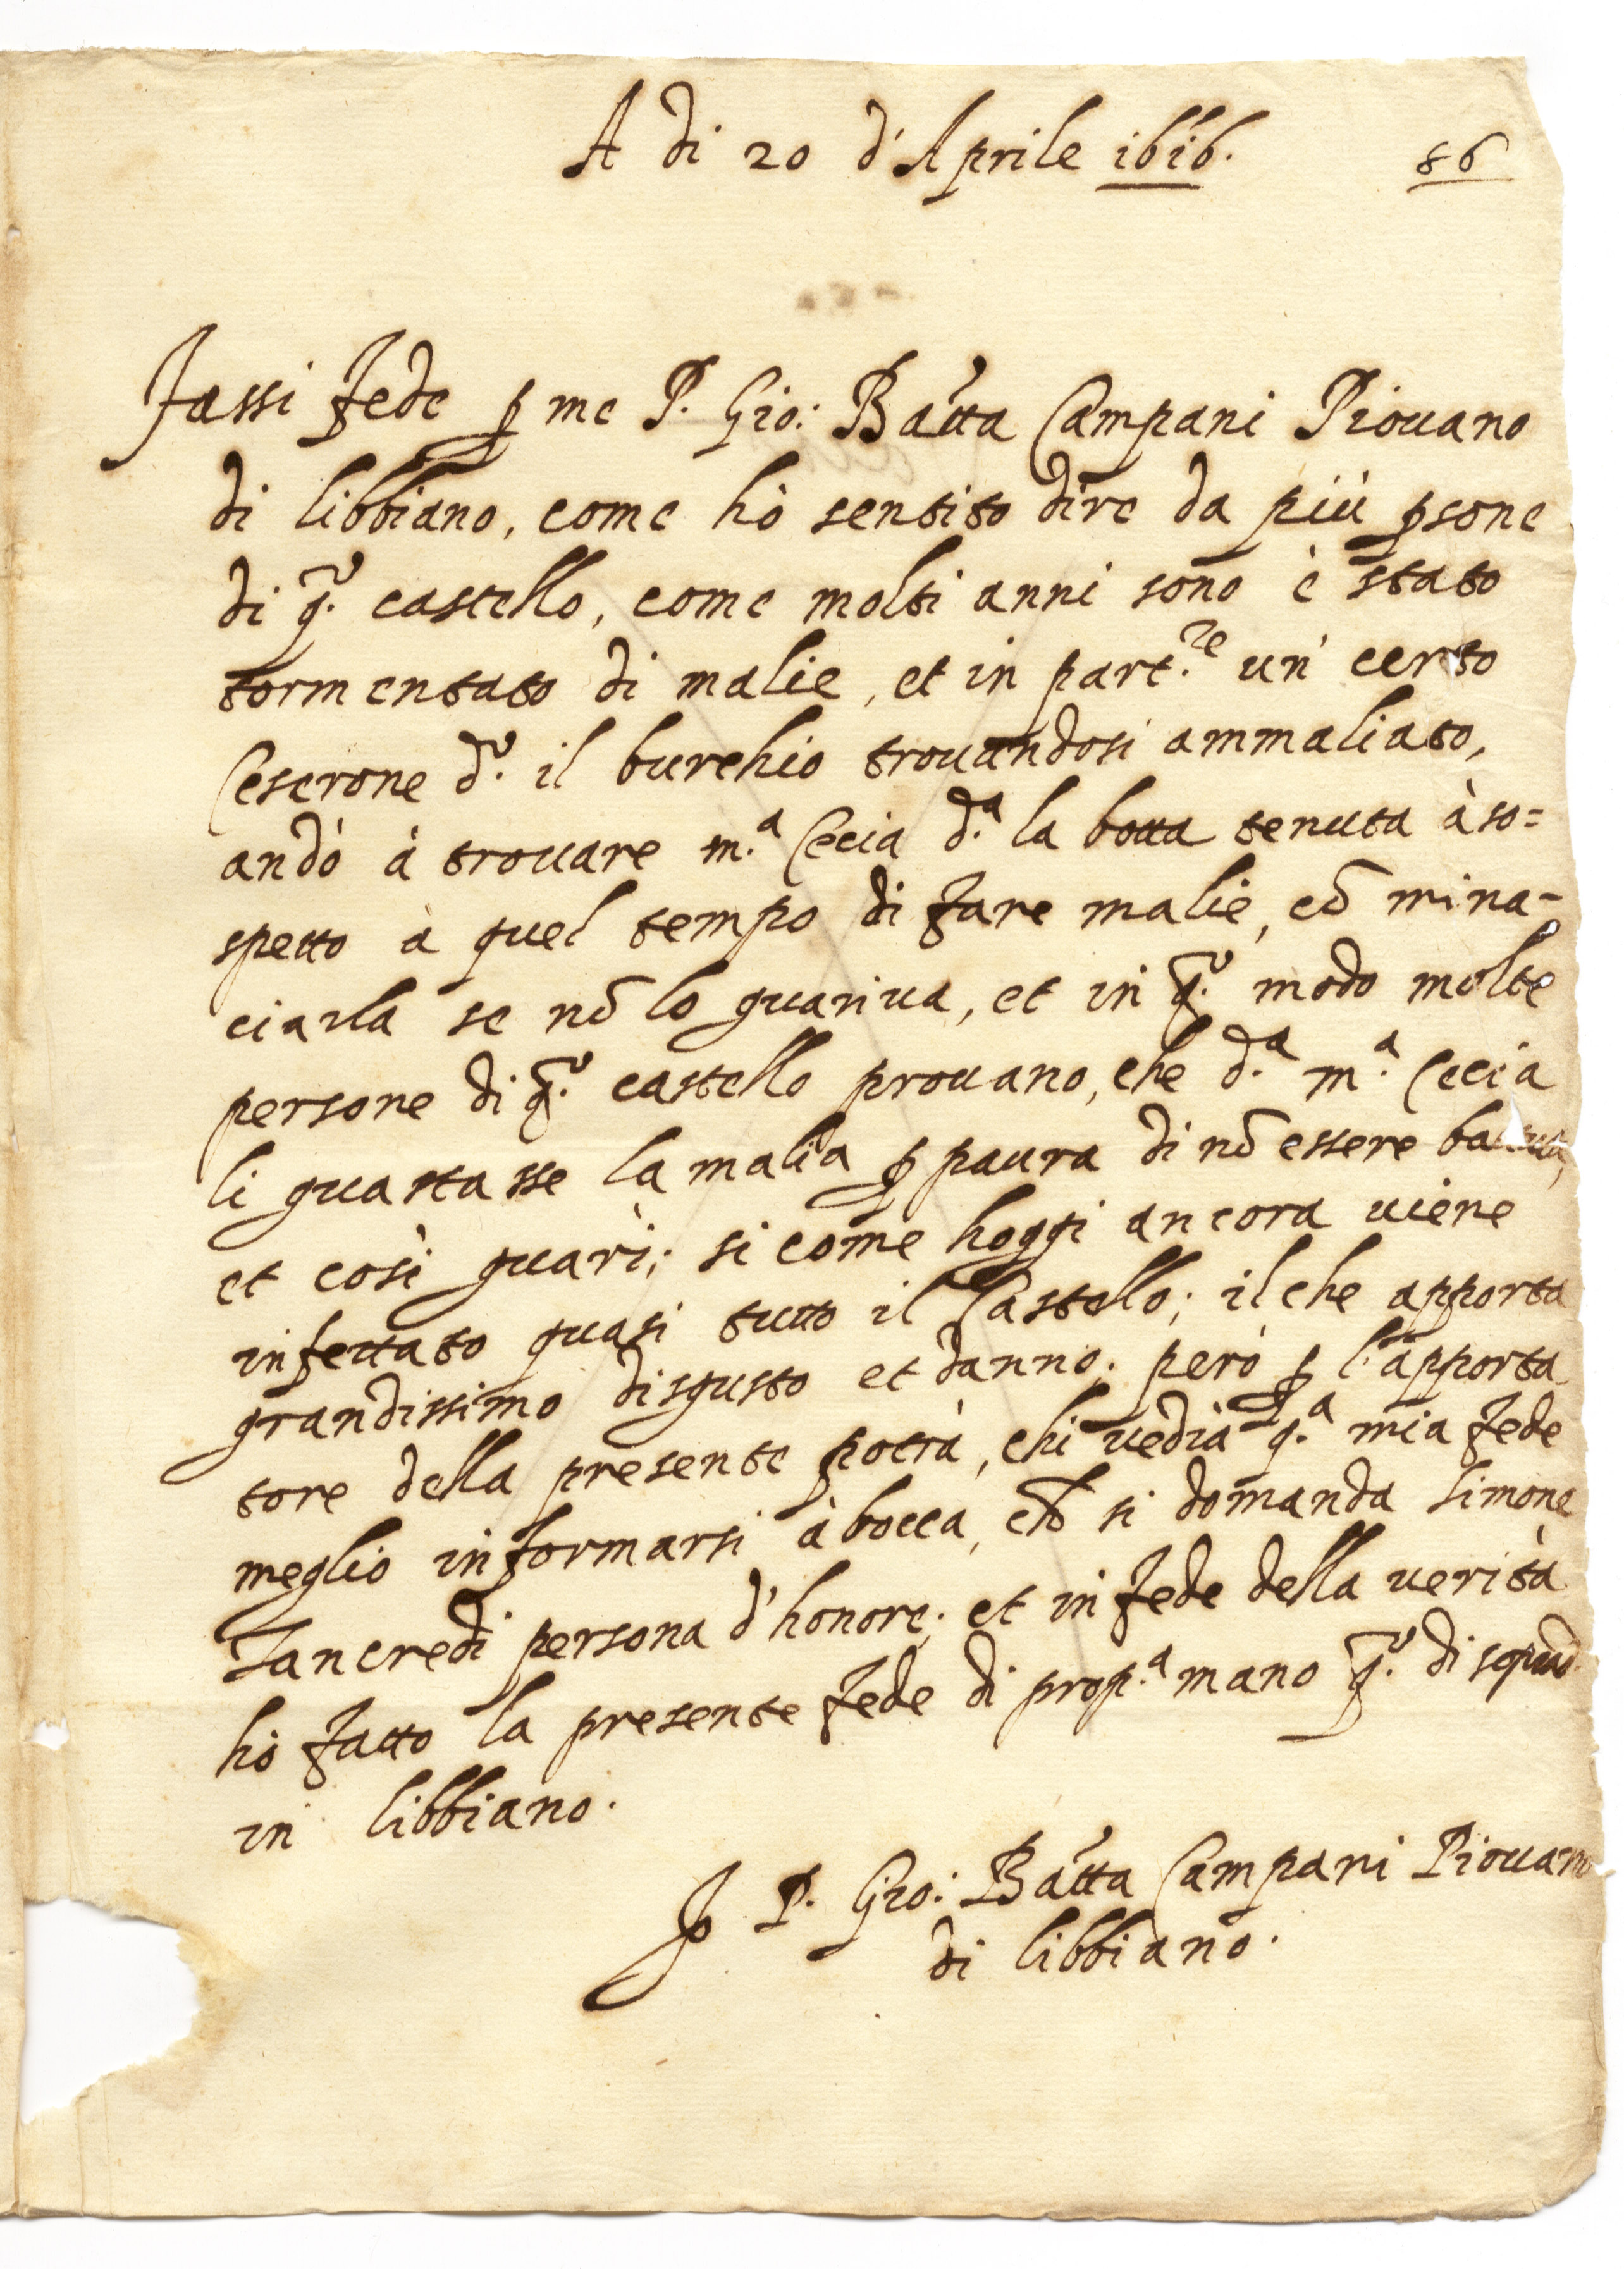 A di 20 d'Aprile 1616.
86
Fassi fede p me P. Gio: Batta Campani Piovano
di libbiano, come hò sentito dire da più psone
di q.º castello, come molti anni sono è stato
tormentato di malie, et in part.re un' certo
Ceserone d.º il burchio trouandosi ammaliato,
andò à trouare m.a Cecia d.a la botta tenuta à so=
spetto à quel tempo di fare malie, cõ mina-
ciarla se nõ lo guariua, et in q.º modo molte
persone di q.º castello prouano, che d.a m.a Cecia
li guastasse la malia p paura di nõ essere
et così guarì; si come hoggi ancora uiene
infettato quasi tutto il Castello; il che apporta
grandissimo disgusto et danno. però p l'apporta
tore della presente potrà, chi uedrà q.a mia fede
meglio informarsi à bocca, chẽ si domanda Simone
Tancredi persona d'honore; et in fede della uerità
hò fatto la presente fede di prop.a mano q.º dì
in libbiano.
Io P. Gio: Batta Campani Piouano
di libbiano.